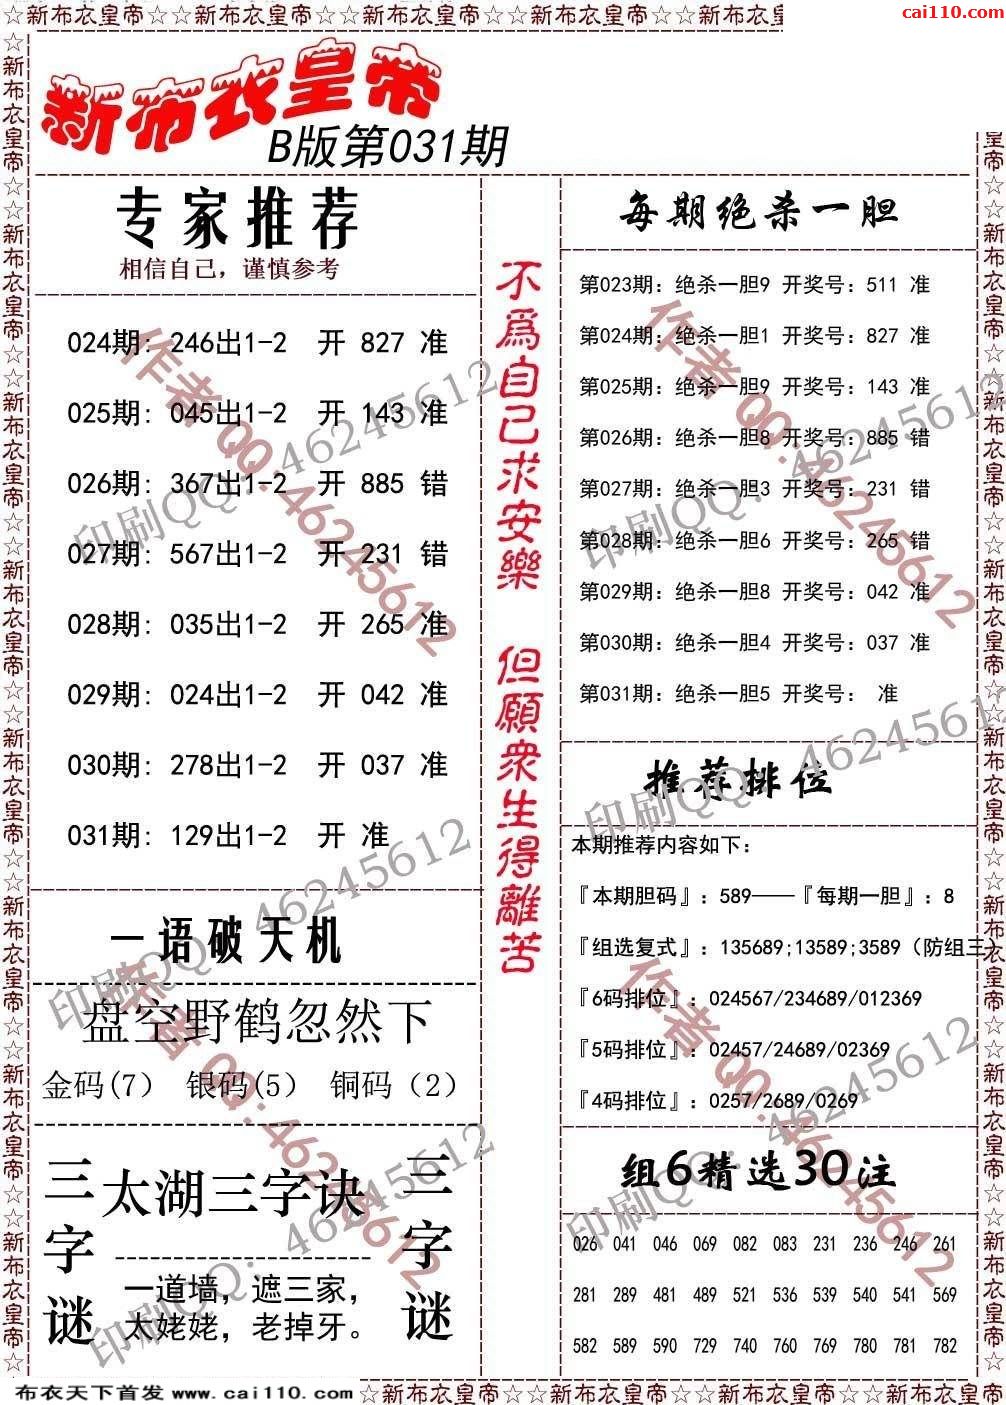 ☆新布衣皇帝☆☆新布衣皇帝☆☆新布衣皇帝☆☆新布衣皇帝☆☆新布衣皇帝☆☆新布衣皇
cai110.com
新布衣皇帝
B版第031期
专家推荐
相信自己，谨慎参考
024期: 246出1-2 开 827 准
025期: 045出1-2 开 143 准
026期: 367出1-2 开 885 错
027期: 567出1-2 开 231 错
028期: 035出1-2 开 265 准
029期: 024出1-2 开 042 准
030期: 278出1-2 开 037 准
031期: 129出1-2 开 准
一语破天机
盘空野鹤忽然下
金码(7) 银码(5) 铜码（2）
三字谜
太湖三字诀
一道墙，遮三家，
太姥姥，老掉牙。
三字谜
不爲自己求安樂 但願衆生得離苦
每期绝杀一胆
第023期: 绝杀一胆9 开奖号: 511 准
第024期: 绝杀一胆1 开奖号: 827 准
第025期: 绝杀一胆9 开奖号: 143 准
第026期: 绝杀一胆8 开奖号: 885 错
第027期: 绝杀一胆3 开奖号: 231 错
第028期: 绝杀一胆6 开奖号: 265 错
第029期: 绝杀一胆8 开奖号: 042 准
第030期: 绝杀一胆4 开奖号: 037 准
第031期: 绝杀一胆5 开奖号: 准
推荐排位
本期推荐内容如下:
『本期胆码』: 589——『每期一胆』: 8
『组选复式』: 135689;13589;3589（防组三）
『6码排位』: 024567/234689/012369
『5码排位』: 02457/24689/02369
『4码排位』: 0257/2689/0269
组6精选30注
026 041 046 069 082 083 231 236 246 261
281 289 481 489 521 536 539 540 541 569
582 589 590 729 740 760 769 780 781 782
作者 QQ: 46245612
印刷QQ: 46245612
作者 QQ: 46245612
印刷QQ: 46245612
印刷QQ: 46245612
印刷QQ: 46245612
作者 QQ: 46245612
作者 QQ: 46245612
印刷QQ: 46245612
印刷QQ: 46245612
布衣天下首发 www.cai110.com
☆新布衣皇帝☆☆新布衣皇帝☆☆新布衣皇帝☆☆新布衣皇帝☆